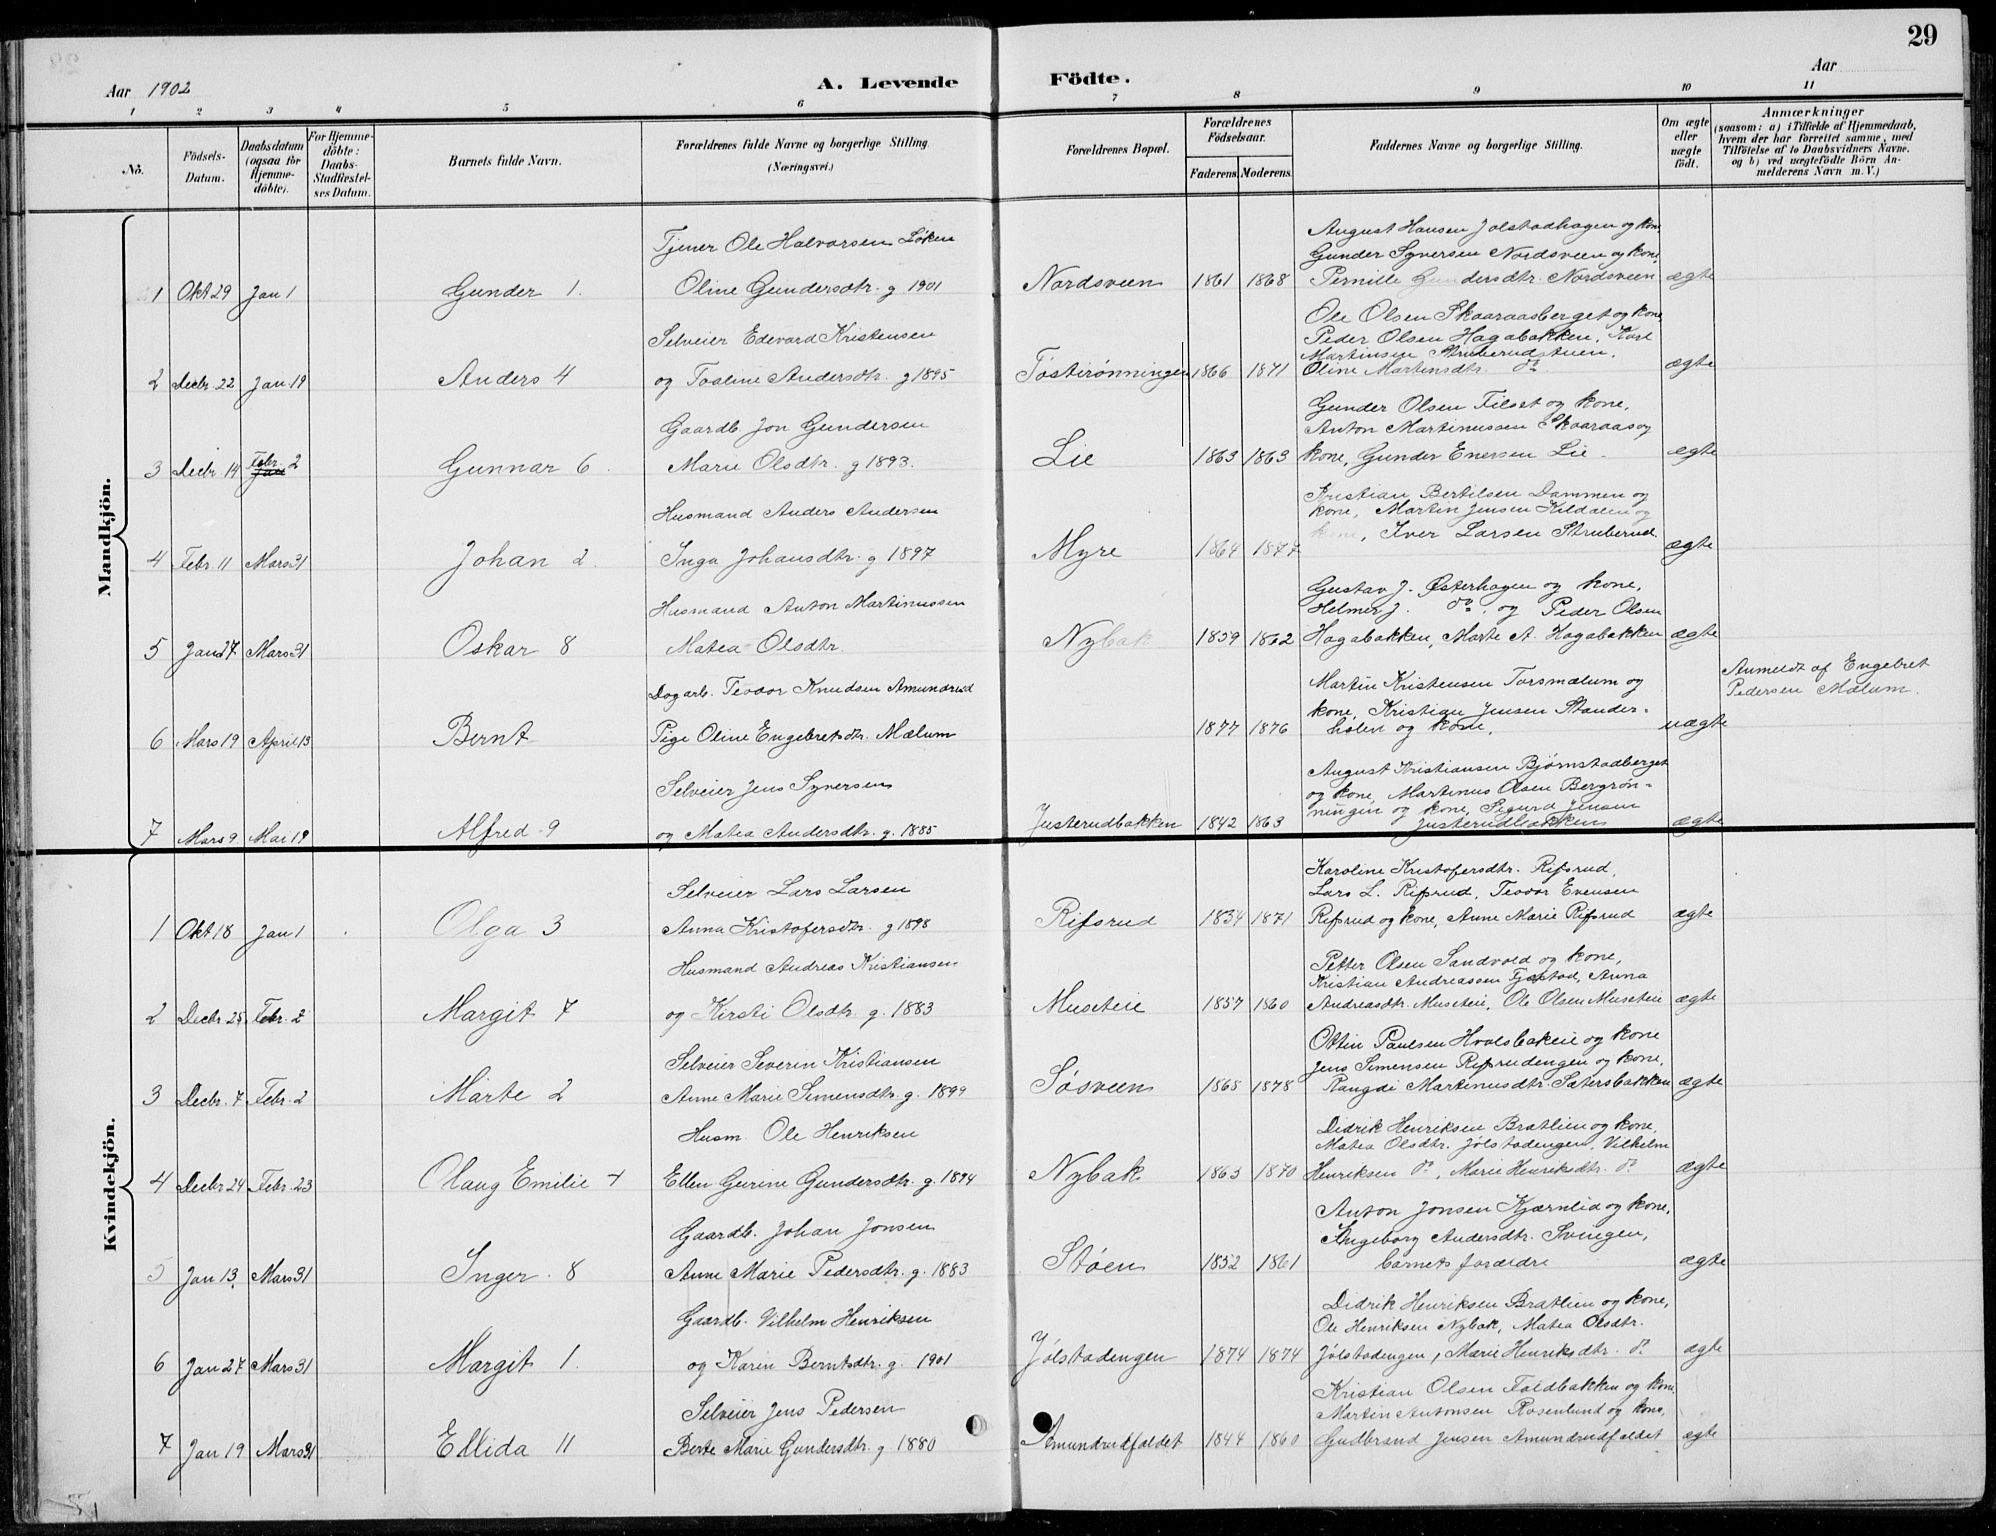 29
Aar 1902
A. Levende Födte.
Aar
1 2 3 4 5 6 7 8 9 10 11
No.
Födsels-Datum.
Daabsdatum (ogsaa for Hjemmedöbte).
For Hjemmedöbte: Daabs-Stadfestelses Datum.
Barnets fulde Navn.
Forældrenes fulde Navne og borgerlige Stilling. (Næringsvei.)
Forældrenes Bopæl.
Forældrenes Födselsaar.
Faderens Moderens
Faddernes Navne og borgerlige Stilling.
Om ægte eller uægte födt.
Anmærkninger
(saasom: a) i Tilfælde af Hjemmedaab, hvem der har forrettet samme, med Tilföielse af to Daabsvidners Navne, og b) ved uægtefödte Börn Anmelderens Navn m. V.)
Mandkjön.
Tjener Ole Halvorsen Løken
August Hansen Jolstadhagen og kone
Gunder Syversen Nordsveen og kone,
1 Okt 29 Jan 1 Gunder 1. Oline Gundersdtr. g 1901 Nordsveen 1861 1868 Pernille Gundersdtr. Nordsveen ægte
Selveier Edevard Kristensen
Ole Olsen Skaaraasberget og kone
Peder Olsen Hagabakken, Karl
Martinsen Struberudstuen,
2 Decbr. 22 Jan 19 Anders 4 og Toaline Andersdtr. g 1895 Tøstirønningen 1866 1871 Oline Martinsdtr. do ægte
Gaardb. Jon Gundersen
Gunder Olsen Filset og kone,
Anton Martinussen Skaaraas og
3 Decbr. 14 Febr. 2 Gunnar 6. Marie Olsdtr. g 1893. Lie 1863 1863 kone, Gunder Enersen Lie. ægte
Husmand Anders Andersen
Kristian Bertilsen Dammen og
kone, Martin Jensen Kildalen og
4 Febr. 11 Mars 31 Johan 2. Inga Johansdtr. g 1897 Myre 1864 1877 kone, Iver Larsen Struberud. ægte
Husmand Anton Martinussen
Gustav J. Østerhagen og kone,
Helmer J. do, og Peder Olsen
5 Jan 27 Mars 31 Oskar 8 Matea Olsdtr. Nybak 1859 1862 Hagabakken, Marte A. Hagabakken ægte
Dagarb. Teodor Knudsen Amundrud
Martin Kristensen Torsmælum og
kone, Kristian Jensen Stander-
Anmeldt af Engebret
Pedersen Mælum.
6 Mars 19 April 13 Bernt Pige Oline Engebretsdtr. Mælum 1877 1876 holen og kone, uægte
Selveier Jens Syversen
August Kristiansen Bjørnstadberget
og kone, Martinus Olsen Bergrøn-
ningen og kone, Sigurd Jensen
7 Mars 9 Mai 19 Alfred 9 og Matea Andersdtr. g. 1885 Justerudbakken 1842 1863 Justerudbakken ægte
Kvindekjön.
Selveier Lars Larsen
Karoline Kristofersdtr. Rifsrud,
Lars L. Rifsrud, Teodor Evensen
1 Okt 18 Jan 1 Olga 3 Anna Kristofersdtr. g 1898 Rifsrud 1834 1871 Rifsrud og kone, Anne Marie Rifsrud ægte
Husmand Andreas Kristiansen
Petter Olsen Sandvold og kone,
Kristian Andreassen Fjæstad, Anna
2 Decbr 25 Febr. 2 Margit 7 og Kirsti Olsdtr. g. 1883 Museteie 1857 1860 Andreasdtr. Museteie, Ole Olsen Museteie ægte
Selveier Severin Kristiansen
Ottin Paulsen Hvalsbakeie og kone
Jens Simensen Rifsrudengen og kone,
3 Decbr. 7 Febr. 2 Marte 2 Anne Marie Simensdtr. g. 1899 Søsveen 1865 1878 Rangdi Martinusdtr. Sætersbakken ægte
Husm. Ole Henriksen
Didrik Henriksen Bratlien og kone,
Matea Olsdtr. Jølstadengen, Vilhelm
4 Decbr 24 Febr. 23 Olaug Emilie 4 Ellen Gurine Gundersdtr. g. 1894 Nybak 1863 1870 Henriksen do, Marie Henriksdtr. do ægte
Gaardb. Johan Jonsen
Anton Jonsen Kjærnlid og kone,
Ingeborg Andersdtr. Svingen,
5 Jan 13. Mars 31 Inger. 8 Anne Marie Pedersdtr. g. 1883 Støen 1852 1861 barnets forældre ægte
Gaardb. Vilhelm Henriksen
Didrik Henriksen Bratlien og kone,
Ole Henriksen Nybak, Matea Olsdtr.
6 Jan 27 Mars 31 Margit 1. og Karin Berntsdtr. g. 1901 Jølstadengen 1874 1874 Jølstadengen, Marie Henriksdtr. do ægte
Selveier Jens Pedersen
Kristian Olsen Faldbakken og kone
Martin Antonsen Rosenlund og kone,
7 Jan 19 Mars 31 Ellida 11 Berte Marie Gundersdtr. g 1880 Amundrudfaldet 1844 1860 Gudbrand Jensen Amundrudfaldet ægte